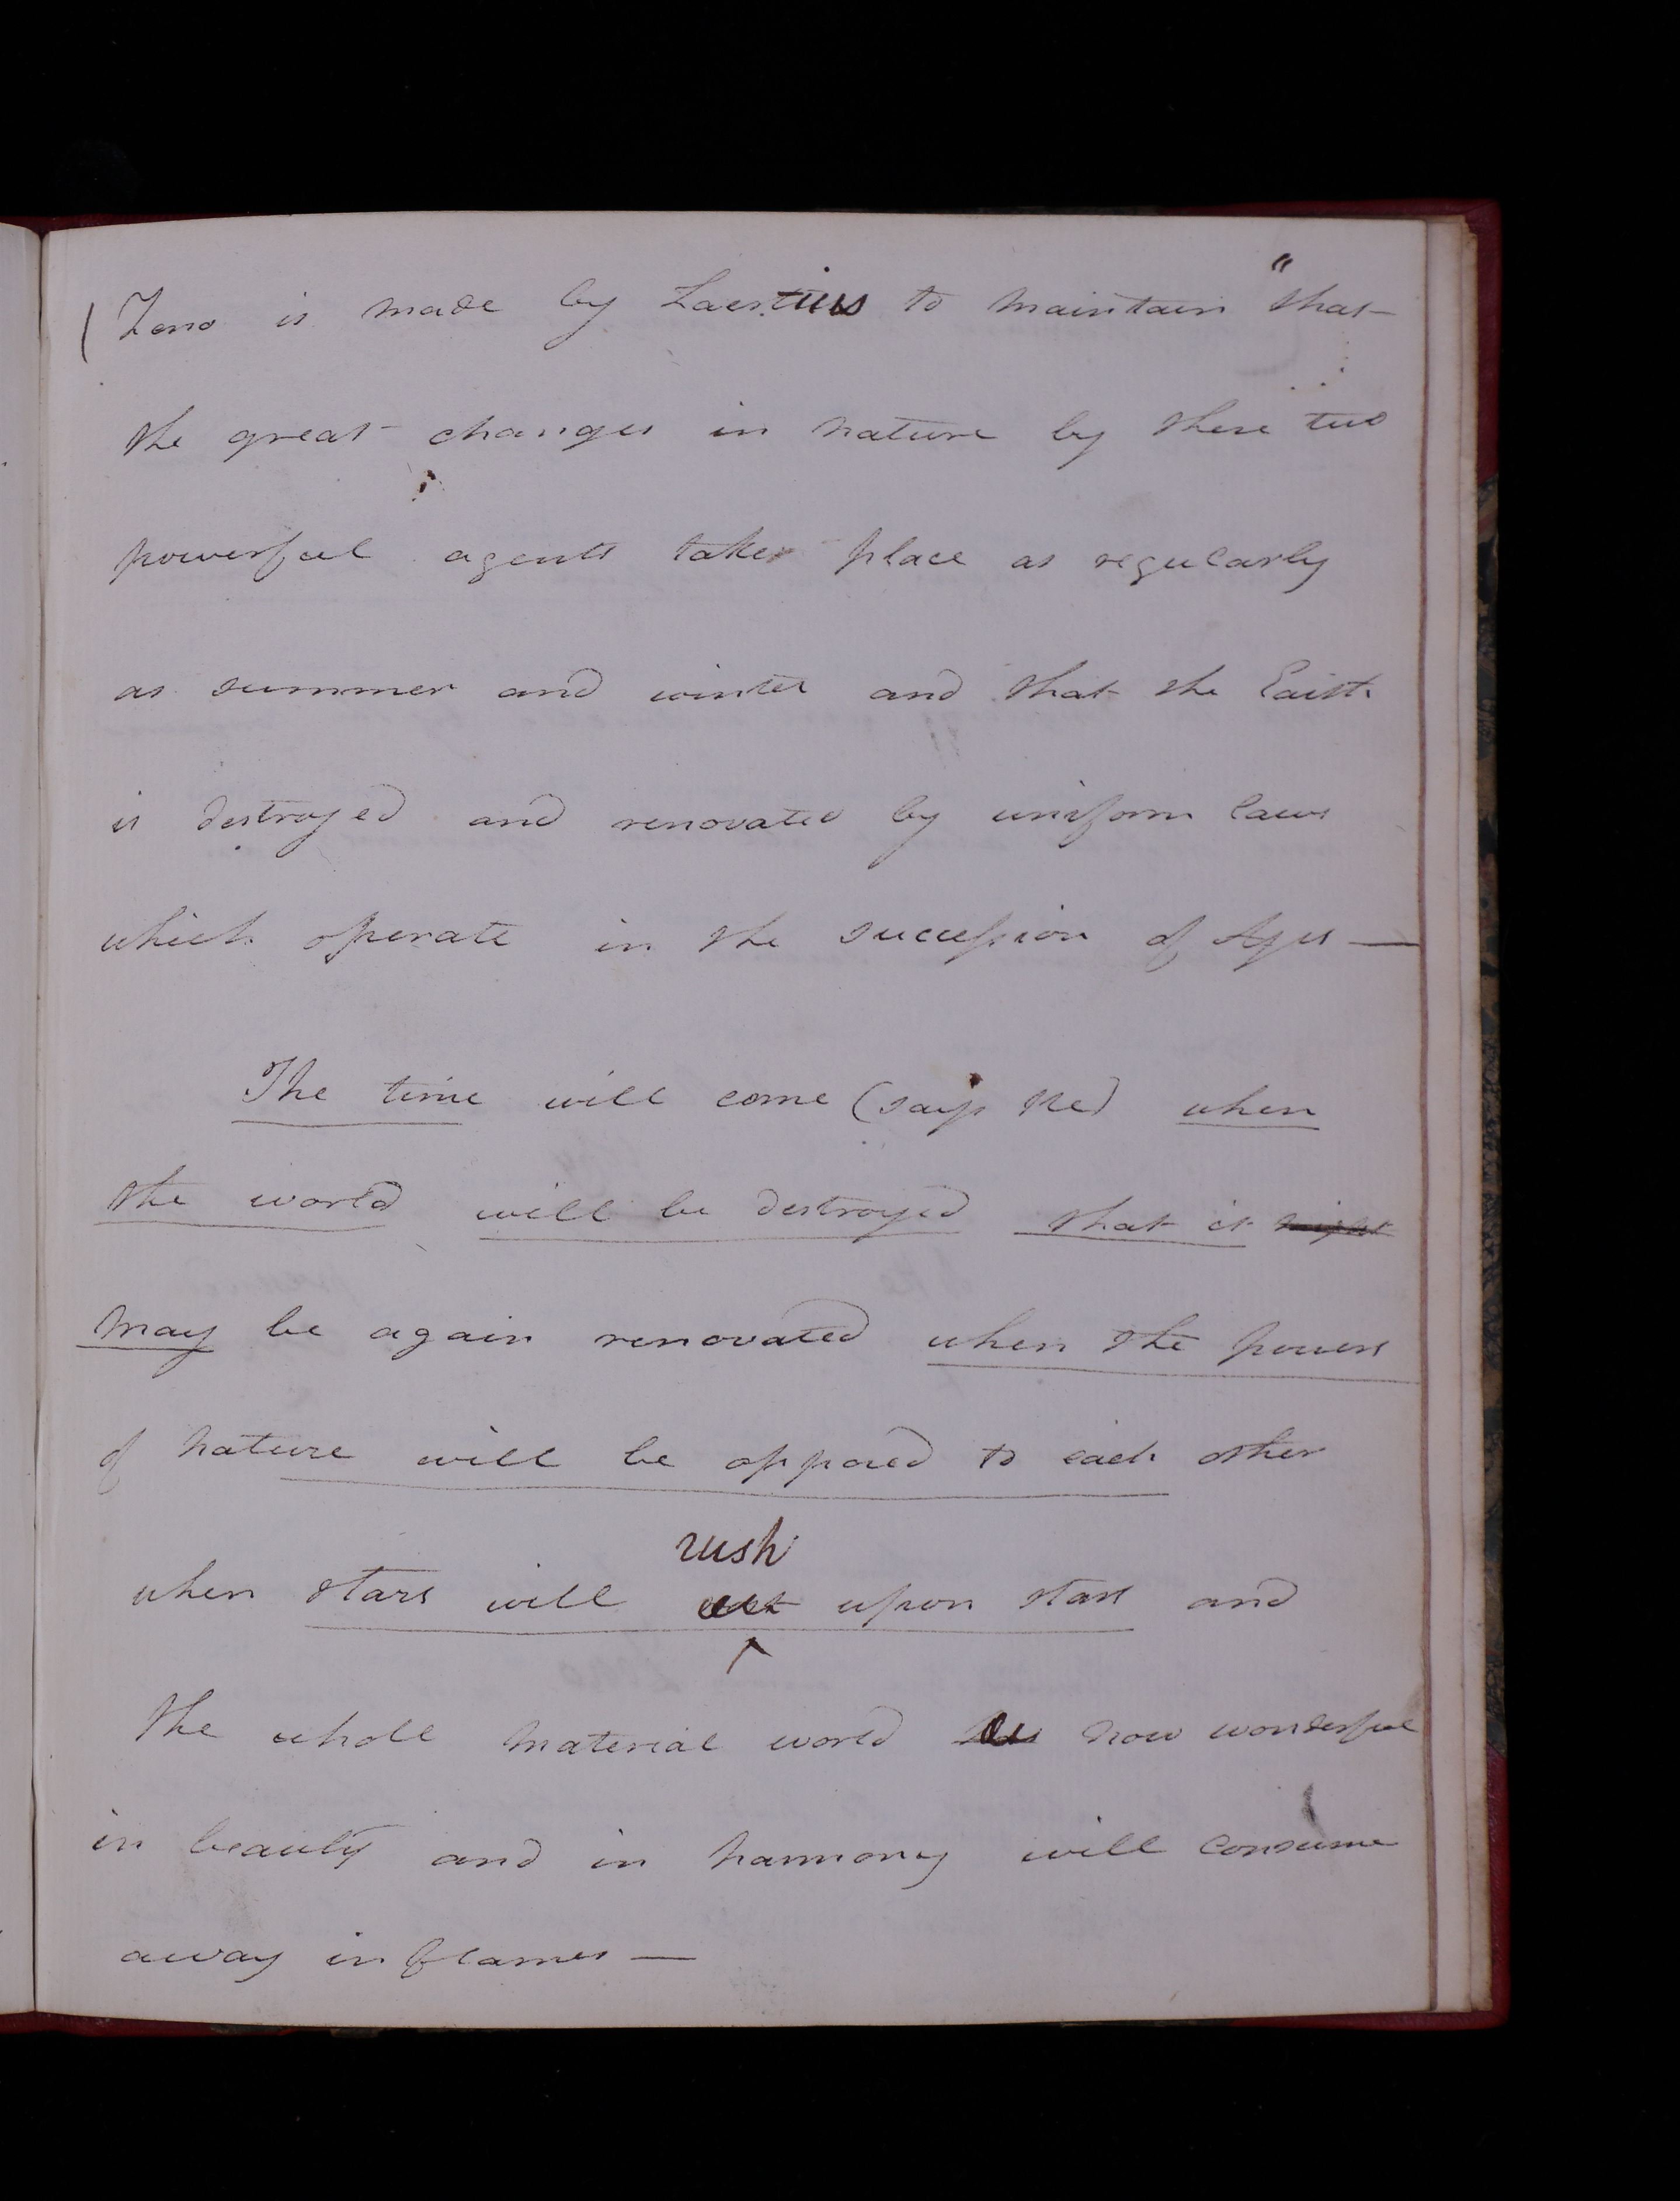 (Zeno is made by Laertius to maintain "that
the great changes in nature by these two
powerful agents takes place as regularly
as summer and winter and that the Earth
is destroyed and renovated by uniform laws
which operate in the succession of Ages —
The time will come (says He) when
the world will be destroyed that it might
may be again renovated when the powers
of nature will be opposed to each other
rush
when stars will upon stars and
the whole material world now wonderful
in beauty and in harmony will consume
away in flames —